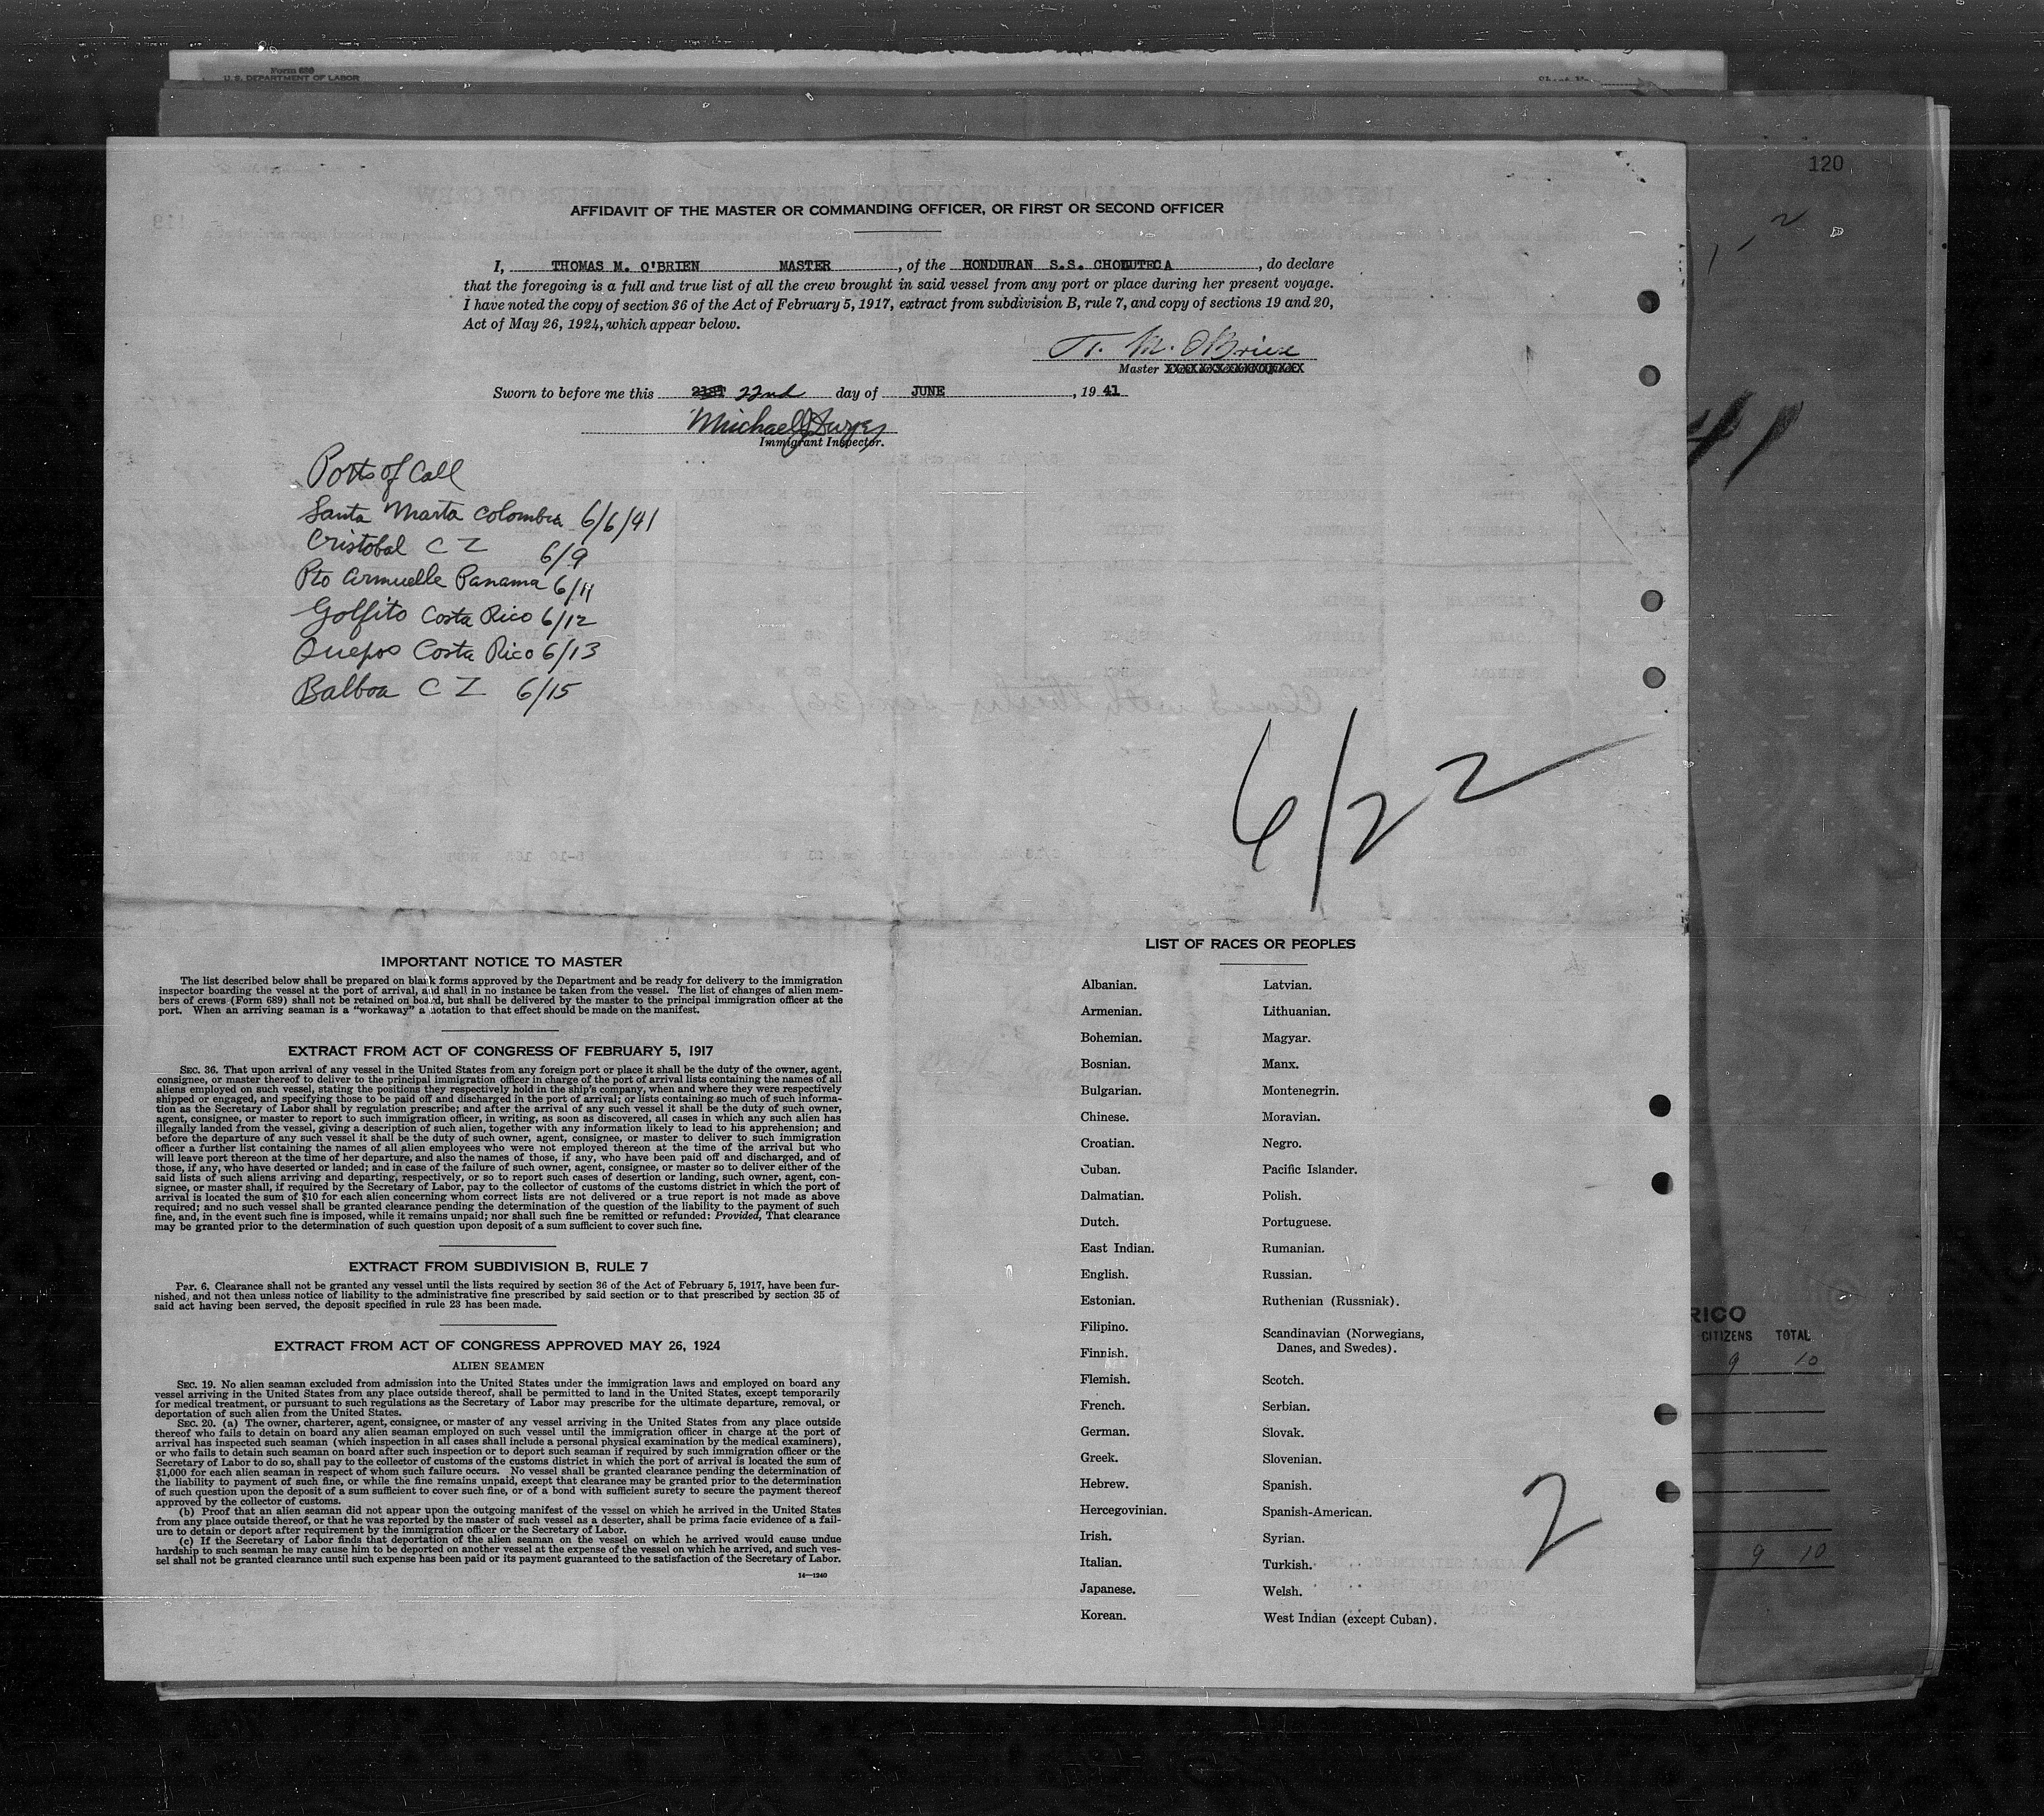 Form 689
U. S. DEPARTMENT OF LABOR
120
AFFIDAVIT OF THE MASTER OR COMMANDING OFFICER, OR FIRST OR SECOND OFFICER
I, THOMAS M. O'BRIEN MASTER, of the HONDURAN S.S. CHOLUTECA, do declare
that the foregoing is a full and true list of all the crew brought in said vessel from any port or place during her present voyage.
I have noted the copy of section 36 of the Act of February 5, 1917, extract from subdivision B, rule 7, and copy of sections 19 and 20,
Act of May 26, 1924, which appear below.
T. M. O'Brien
Master
Sworn to before me this 21ST 22nd day of JUNE, 19 41
Michael J Dwyer
Immigrant Inspector.
Ports of Call
Santa Marta Colombia 6/6/41
Cristobal C Z 6/9
Pto Armuelle Panama 6/11
Golfito Costa Rico 6/12
Quepos Costa Rico 6/13
Balboa C Z 6/15
6/22
2
41
IMPORTANT NOTICE TO MASTER
The list described below shall be prepared on blank forms approved by the Department and be ready for delivery to the immigration
inspector boarding the vessel at the port of arrival, and shall in no instance be taken from the vessel. The list of changes of alien mem-
bers of crews (Form 689) shall not be retained on board, but shall be delivered by the master to the principal immigration officer at the
port. When an arriving seaman is a “workaway” a notation to that effect should be made on the manifest.
EXTRACT FROM ACT OF CONGRESS OF FEBRUARY 5, 1917
SEC. 36. That upon arrival of any vessel in the United States from any foreign port or place it shall be the duty of the owner, agent,
consignee, or master thereof to deliver to the principal immigration officer in charge of the port of arrival lists containing the names of all
aliens employed on such vessel, stating the positions they respectively hold in the ship's company, when and where they were respectively
shipped or engaged, and specifying those to be paid off and discharged in the port of arrival; or lists containing so much of such informa-
tion as the Secretary of Labor shall by regulation prescribe; and after the arrival of any such vessel it shall be the duty of such owner,
agent, consignee, or master to report to such immigration officer, in writing, as soon as discovered, all cases in which any such alien has
illegally landed from the vessel, giving a description of such alien, together with any information likely to lead to his apprehension; and
before the departure of any such vessel it shall be the duty of such owner, agent, consignee, or master to deliver to such immigration
officer a further list containing the names of all alien employees who were not employed thereon at the time of the arrival but who
will leave port thereon at the time of her departure, and also the names of those, if any, who have been paid off and discharged, and of
those, if any, who have deserted or landed; and in case of the failure of such owner, agent, consignee, or master so to deliver either of the
said lists of such aliens arriving and departing, respectively, or so to report such cases of desertion or landing, such owner, agent, con-
signee, or master shall, if required by the Secretary of Labor, pay to the collector of customs of the customs district in which the port of
arrival is located the sum of $10 for each alien concerning whom correct lists are not delivered or a true report is not made as above
required; and no such vessel shall be granted clearance pending the determination of the question of the liability to the payment of such
fine, and, in the event such fine is imposed, while it remains unpaid; nor shall such fine be remitted or refunded: Provided, That clearance
may be granted prior to the determination of such question upon deposit of a sum sufficient to cover such fine.
EXTRACT FROM SUBDIVISION B, RULE 7
PAR. 6. Clearance shall not be granted any vessel until the lists required by section 36 of the Act of February 5, 1917, have been fur-
nished, and not then unless notice of liability to the administrative fine prescribed by said section or to that prescribed by section 35 of
said act having been served, the deposit specified in rule 23 has been made.
EXTRACT FROM ACT OF CONGRESS APPROVED MAY 26, 1924
ALIEN SEAMEN
SEC. 19. No alien seaman excluded from admission into the United States under the immigration laws and employed on board any
vessel arriving in the United States from any place outside thereof, shall be permitted to land in the United States, except temporarily
for medical treatment, or pursuant to such regulations as the Secretary of Labor may prescribe for the ultimate departure, removal, or
deportation of such alien from the United States.
SEC. 20. (a) The owner, charterer, agent, consignee, or master of any vessel arriving in the United States from any place outside
thereof who fails to detain on board any alien seaman employed on such vessel until the immigration officer in charge at the port of
arrival has inspected such seaman (which inspection in all cases shall include a personal physical examination by the medical examiners),
or who fails to detain such seaman on board after such inspection or to deport such seaman if required by such immigration officer or the
Secretary of Labor to do so, shall pay to the collector of customs of the customs district in which the port of arrival is located the sum of
$1,000 for each alien seaman in respect of whom such failure occurs. No vessel shall be granted clearance pending the determination of
the liability to payment of such fine, or while the fine remains unpaid, except that clearance may be granted prior to the determination
of such question upon the deposit of a sum sufficient to cover such fine, or of a bond with sufficient surety to secure the payment thereof
approved by the collector of customs.
(b) Proof that an alien seaman did not appear upon the outgoing manifest of the vessel on which he arrived in the United States
from any place outside thereof, or that he was reported by the master of such vessel as a deserter, shall be prima facie evidence of a fail-
ure to detain or deport after requirement by the immigration officer or the Secretary of Labor.
(c) If the Secretary of Labor finds that deportation of the alien seaman on the vessel on which he arrived would cause undue
hardship to such seaman he may cause him to be deported on another vessel at the expense of the vessel on which he arrived, and such ves-
sel shall not be granted clearance until such expense has been paid or its payment guaranteed to the satisfaction of the Secretary of Labor.
14—1240
LIST OF RACES OR PEOPLES
Albanian.
Armenian.
Bohemian.
Bosnian.
Bulgarian.
Chinese.
Croatian.
Cuban.
Dalmatian.
Dutch.
East Indian.
English.
Estonian.
Filipino.
Finnish.
Flemish.
French.
German.
Greek.
Hebrew.
Hercegovinian.
Irish.
Italian.
Japanese.
Korean.
Latvian.
Lithuanian.
Magyar.
Manx.
Montenegrin.
Moravian.
Negro.
Pacific Islander.
Polish.
Portuguese.
Rumanian.
Russian.
Ruthenian (Russniak).
Scandinavian (Norwegians,
Danes, and Swedes).
Scotch.
Serbian.
Slovak.
Slovenian.
Spanish.
Spanish-American.
Syrian.
Turkish.
Welsh.
West Indian (except Cuban).
2
RICO
CITIZENS TOTAL
9 10
9 10